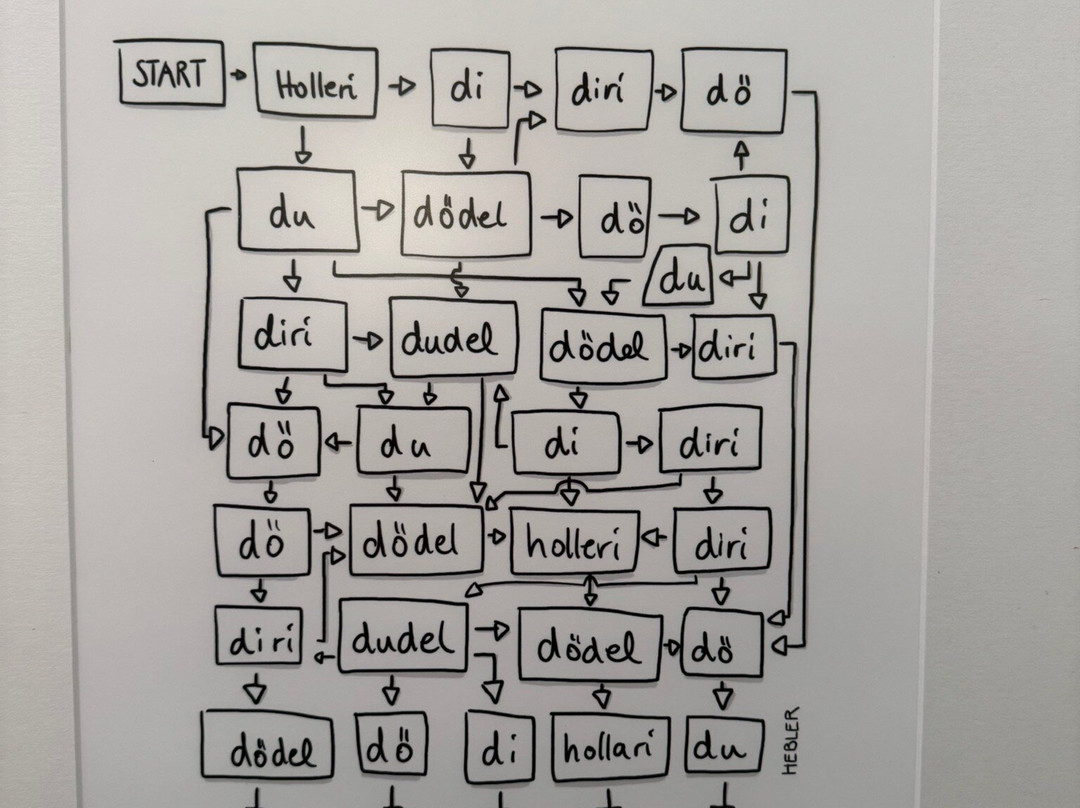 START Holleri di diri dö
du dödel dö di
du
diri dudel dödel diri
dö du di diri
dö dödel holleri diri
diri dudel dödel dö
dödel dö di hollari du
HEBLER